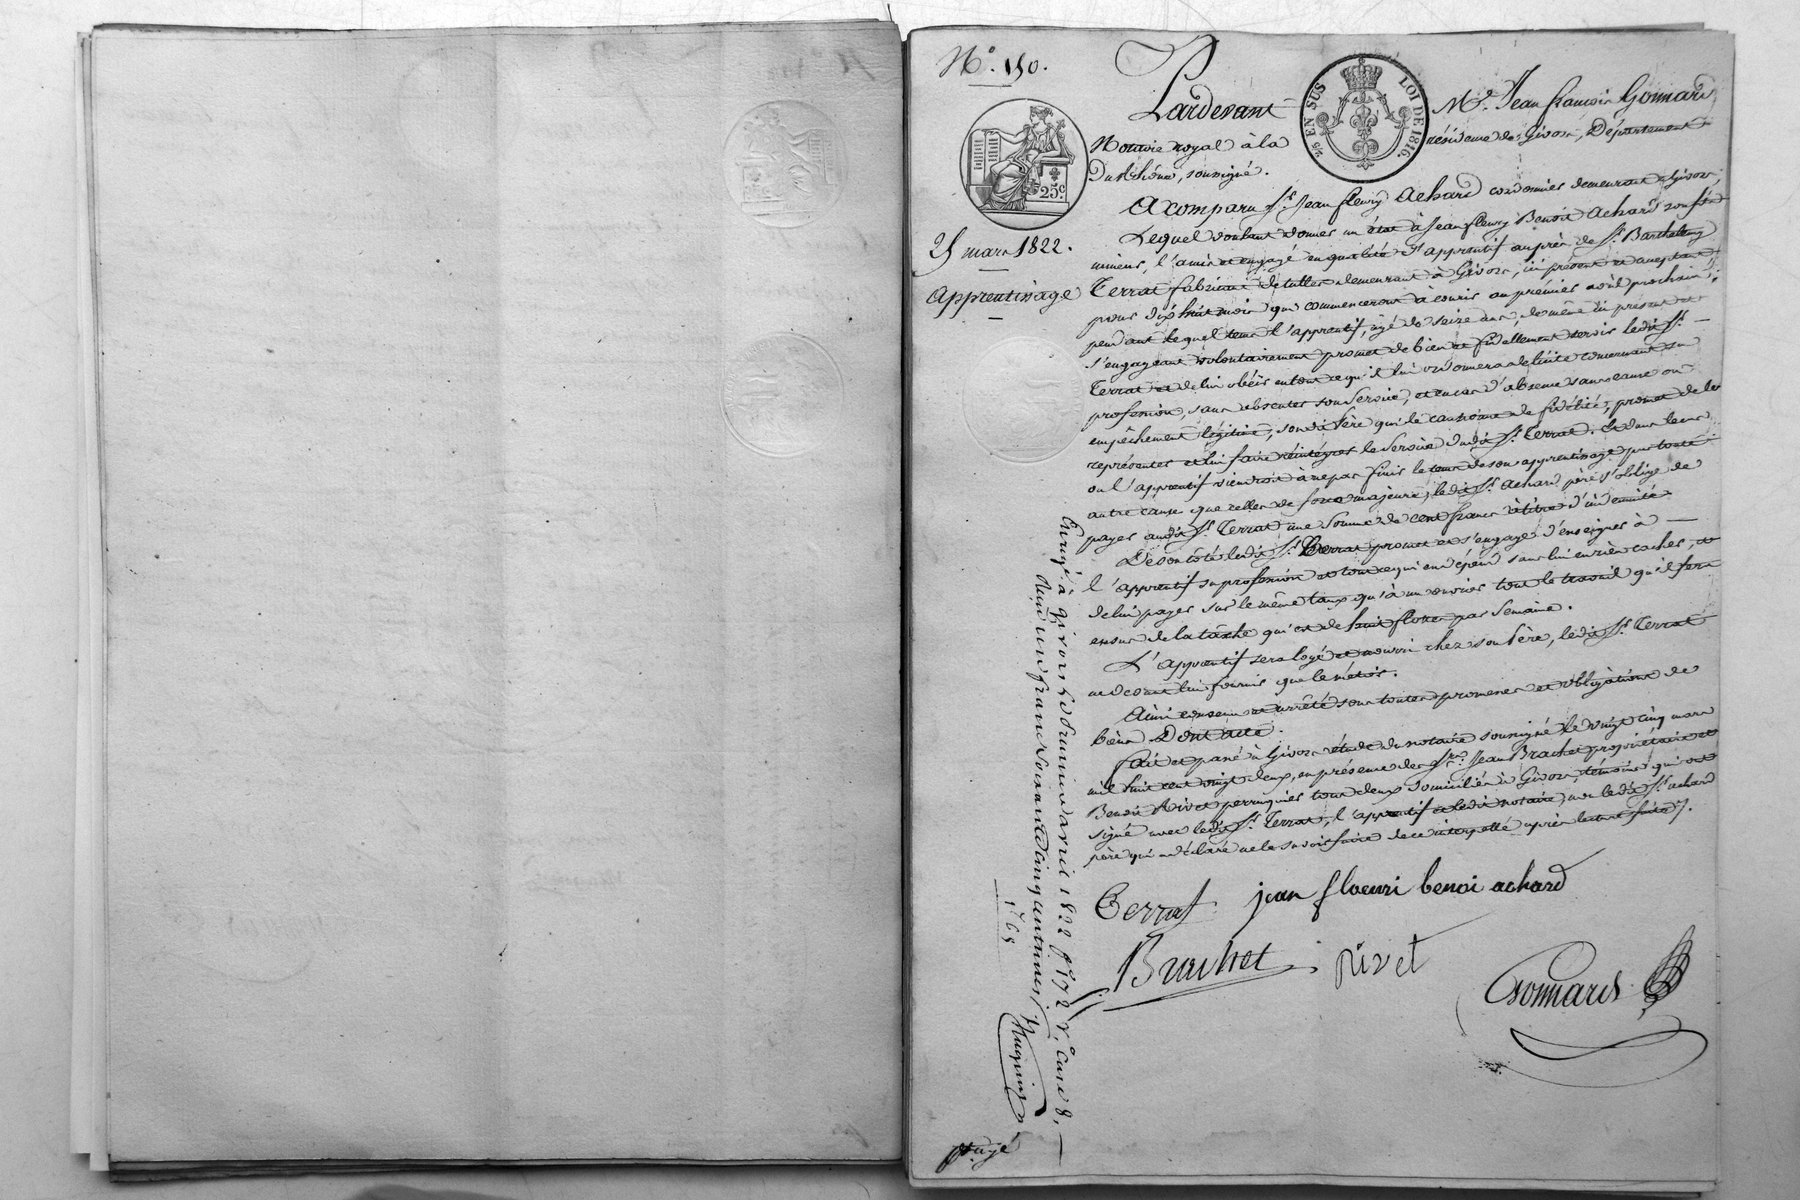 N.° 150.
25 mars 1822.
Apprentissage
25.c
25 EN SUS LOI DE 1816.
Pardevant M.e Jean françois Gonnard
Notaire royal à la résidence de Givors, Département
Du Rhône, soussigné.
A comparu S.r Jean fleury Achard cordonnier demeurant à Givors,
Lequel voulant donner un état à Jean fleury Benoit Achard son fils
mineur, l'a mis et engagé en qualité d'apprentif auprès de S.r Barthelemy
Terrat fabricant de tulles demeurant à Givors, ici présent et acceptant
pour dix huit mois qui commenceront à courir au premier avril prochain;
pendant lequel tems l'apprentif, âgé de seize ans, de même ici présent et
s'engageant volontairement promet de bien et fidellement servir ledit S.r
Terrat et de lui obéir en tout ce qu'il lui ordonnera de licite concernant sa
profession, sans absenter son service, et en cas d'absence sans cause ou
empêchement légitime, son dit Père qui le cautionne de fidélité, promet de le
représenter et lui faire réintégrer le service dudit S.r Terrat. Et dans le cas
ou l'apprentif viendroit à ne pas finir le tems de son apprentissage par toute
autre cause que celle de force majeure, ledit S.r Achard père s'oblige de
payer audit S.r Terrat une somme de cent francs à titre d'indemnité.
De son côté ledit S.r Terrat promet et s'engage d'enseigner à
l'apprentif sa profession et tout ce qui en dépend sans lui en rien cacher, et
de lui payer sur le même taux qu'à un ouvrier tout le travail qu'il fera
en sus de la tâche qui est de huit flottes par semaine.
L'apprentif sera logé et nourri chez son Père, ledit S.r Terrat
ne devant lui fournir que le métier.
Ainsi convenu et arrêté sous toutes promesses et obligations de
biens. Dont acte.
fait et passé à Givors étude du notaire soussigné le vingt cinq mars
mil huit cent vingt deux, en présence des S.rs Jean Brachet propriétaire et
Benoit Rivet perruquier tous deux domiciliés à Givors, témoins qui ont
signé avec ledit S.r Terrat, l'apprentif et ledit notaire, non ledit S.r achard
père qui a déclaré ne le savoir faire de ce interpellé après lecture faite.
Terrat jean floeuri benoi achard
Brachet rivet
Gonnard
Enreg.é à Givors le deux avril 1822 f.° 172 V.° case 8,
Reçu un franc soixante cinq centimes
Huguin
1.f 65